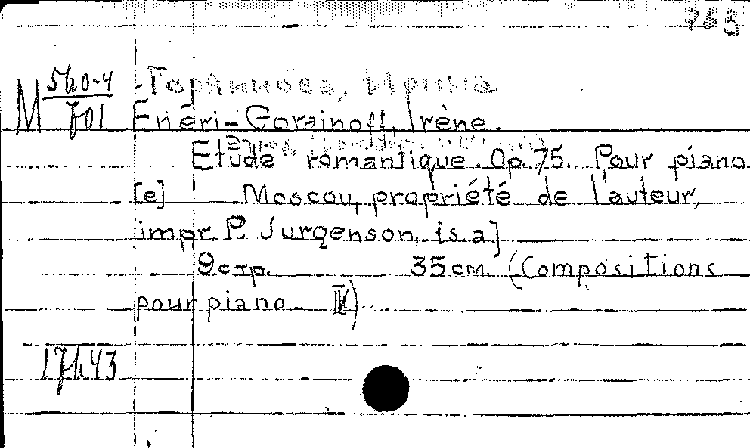 783
M 5h0-4/701
Enéri-Gorainoff, Irène.
Etude romantique. Op. 75. Pour piano
[e] Moscou, propriété de l'auteur,
impr. P. Jurgenson, [s.a]
9 стр. 35 см. (Compositions
pour piano IV)
17h43